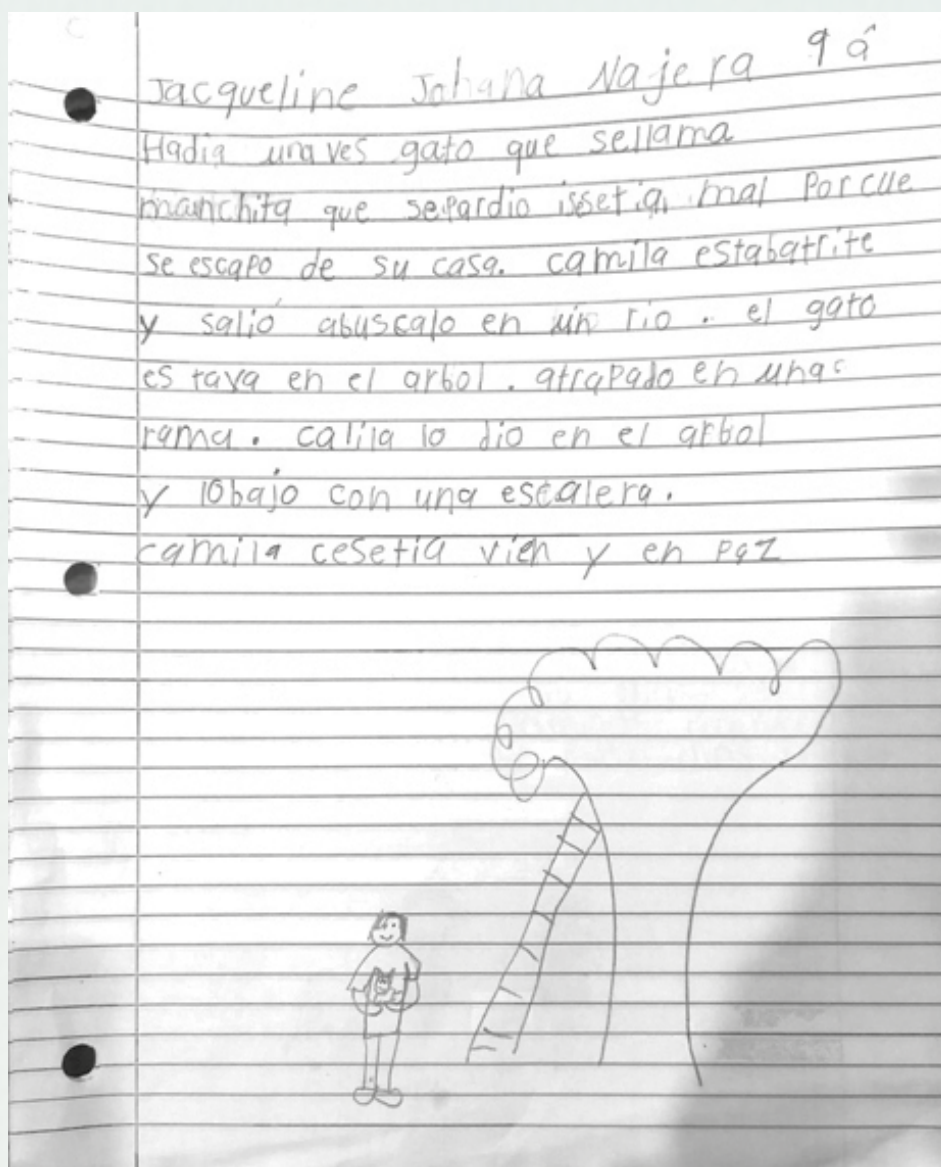 Jacqueline Johana Najera 9 á
Hadia una ves gato que sellama
manchita que separdio issetia mal Porcue
se escapo de su casa. camila estabatrite
y salió abuscalo en un rio. el gato
es tava en el arbol. atrapado en una
rama. calila lo dio en el arbol
y lobajo con una escalera.
camila cesetia vien y en paz